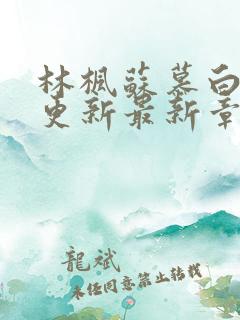 林楓蘇慕白
更新最新章
龍斌
未经同意禁止转载